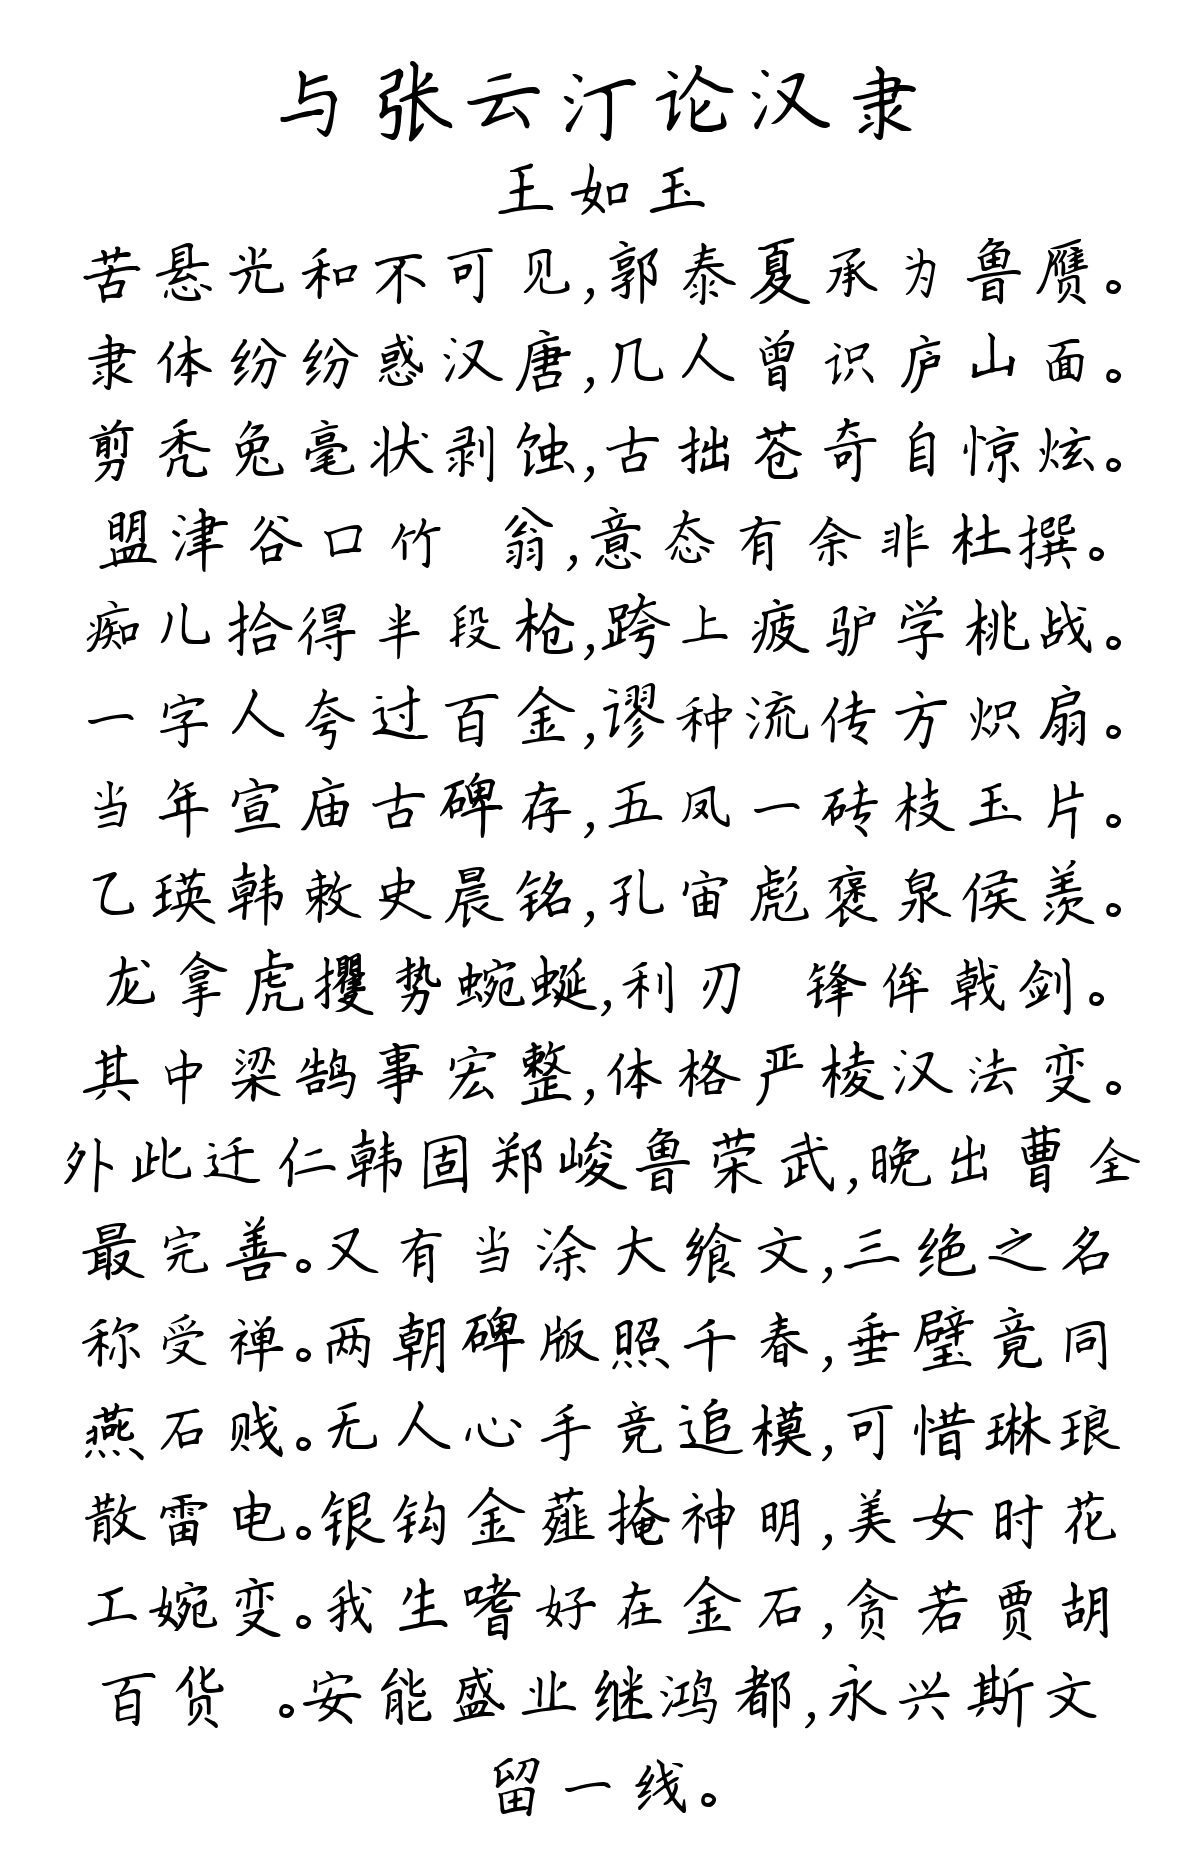 与张云汀论汉隶
王如玉
苦悬光和不可见,郭泰夏承为鲁赝。
隶体纷纷惑汉唐,几人曾识庐山面。
剪秃兔毫状剥蚀,古拙苍奇自惊炫。
盟津谷口竹 翁,意态有余非杜撰。
痴儿拾得半段枪,跨上疲驴学挑战。
一字人夸过百金,谬种流传方炽扇。
当年宣庙古碑存,五凤一砖枝玉片。
乙瑛韩敕史晨铭,孔宙彪褒泉侯羡。
龙拿虎攫势蜿蜒,利刃 锋侔戟剑。
其中梁鹄事宏整,体格严棱汉法变。
外此迁仁韩固郑峻鲁荣武,晚出曹全
最完善。又有当涂大飨文,三绝之名
称受禅。两朝碑版照千春,垂璧竟同
燕石贱。无人心手竞追模,可惜琳琅
散雷电。银钩金薤掩神明,美女时花
工婉变。我生嗜好在金石,贪若贾胡
百货 。安能盛业继鸿都,永兴斯文
留一线。